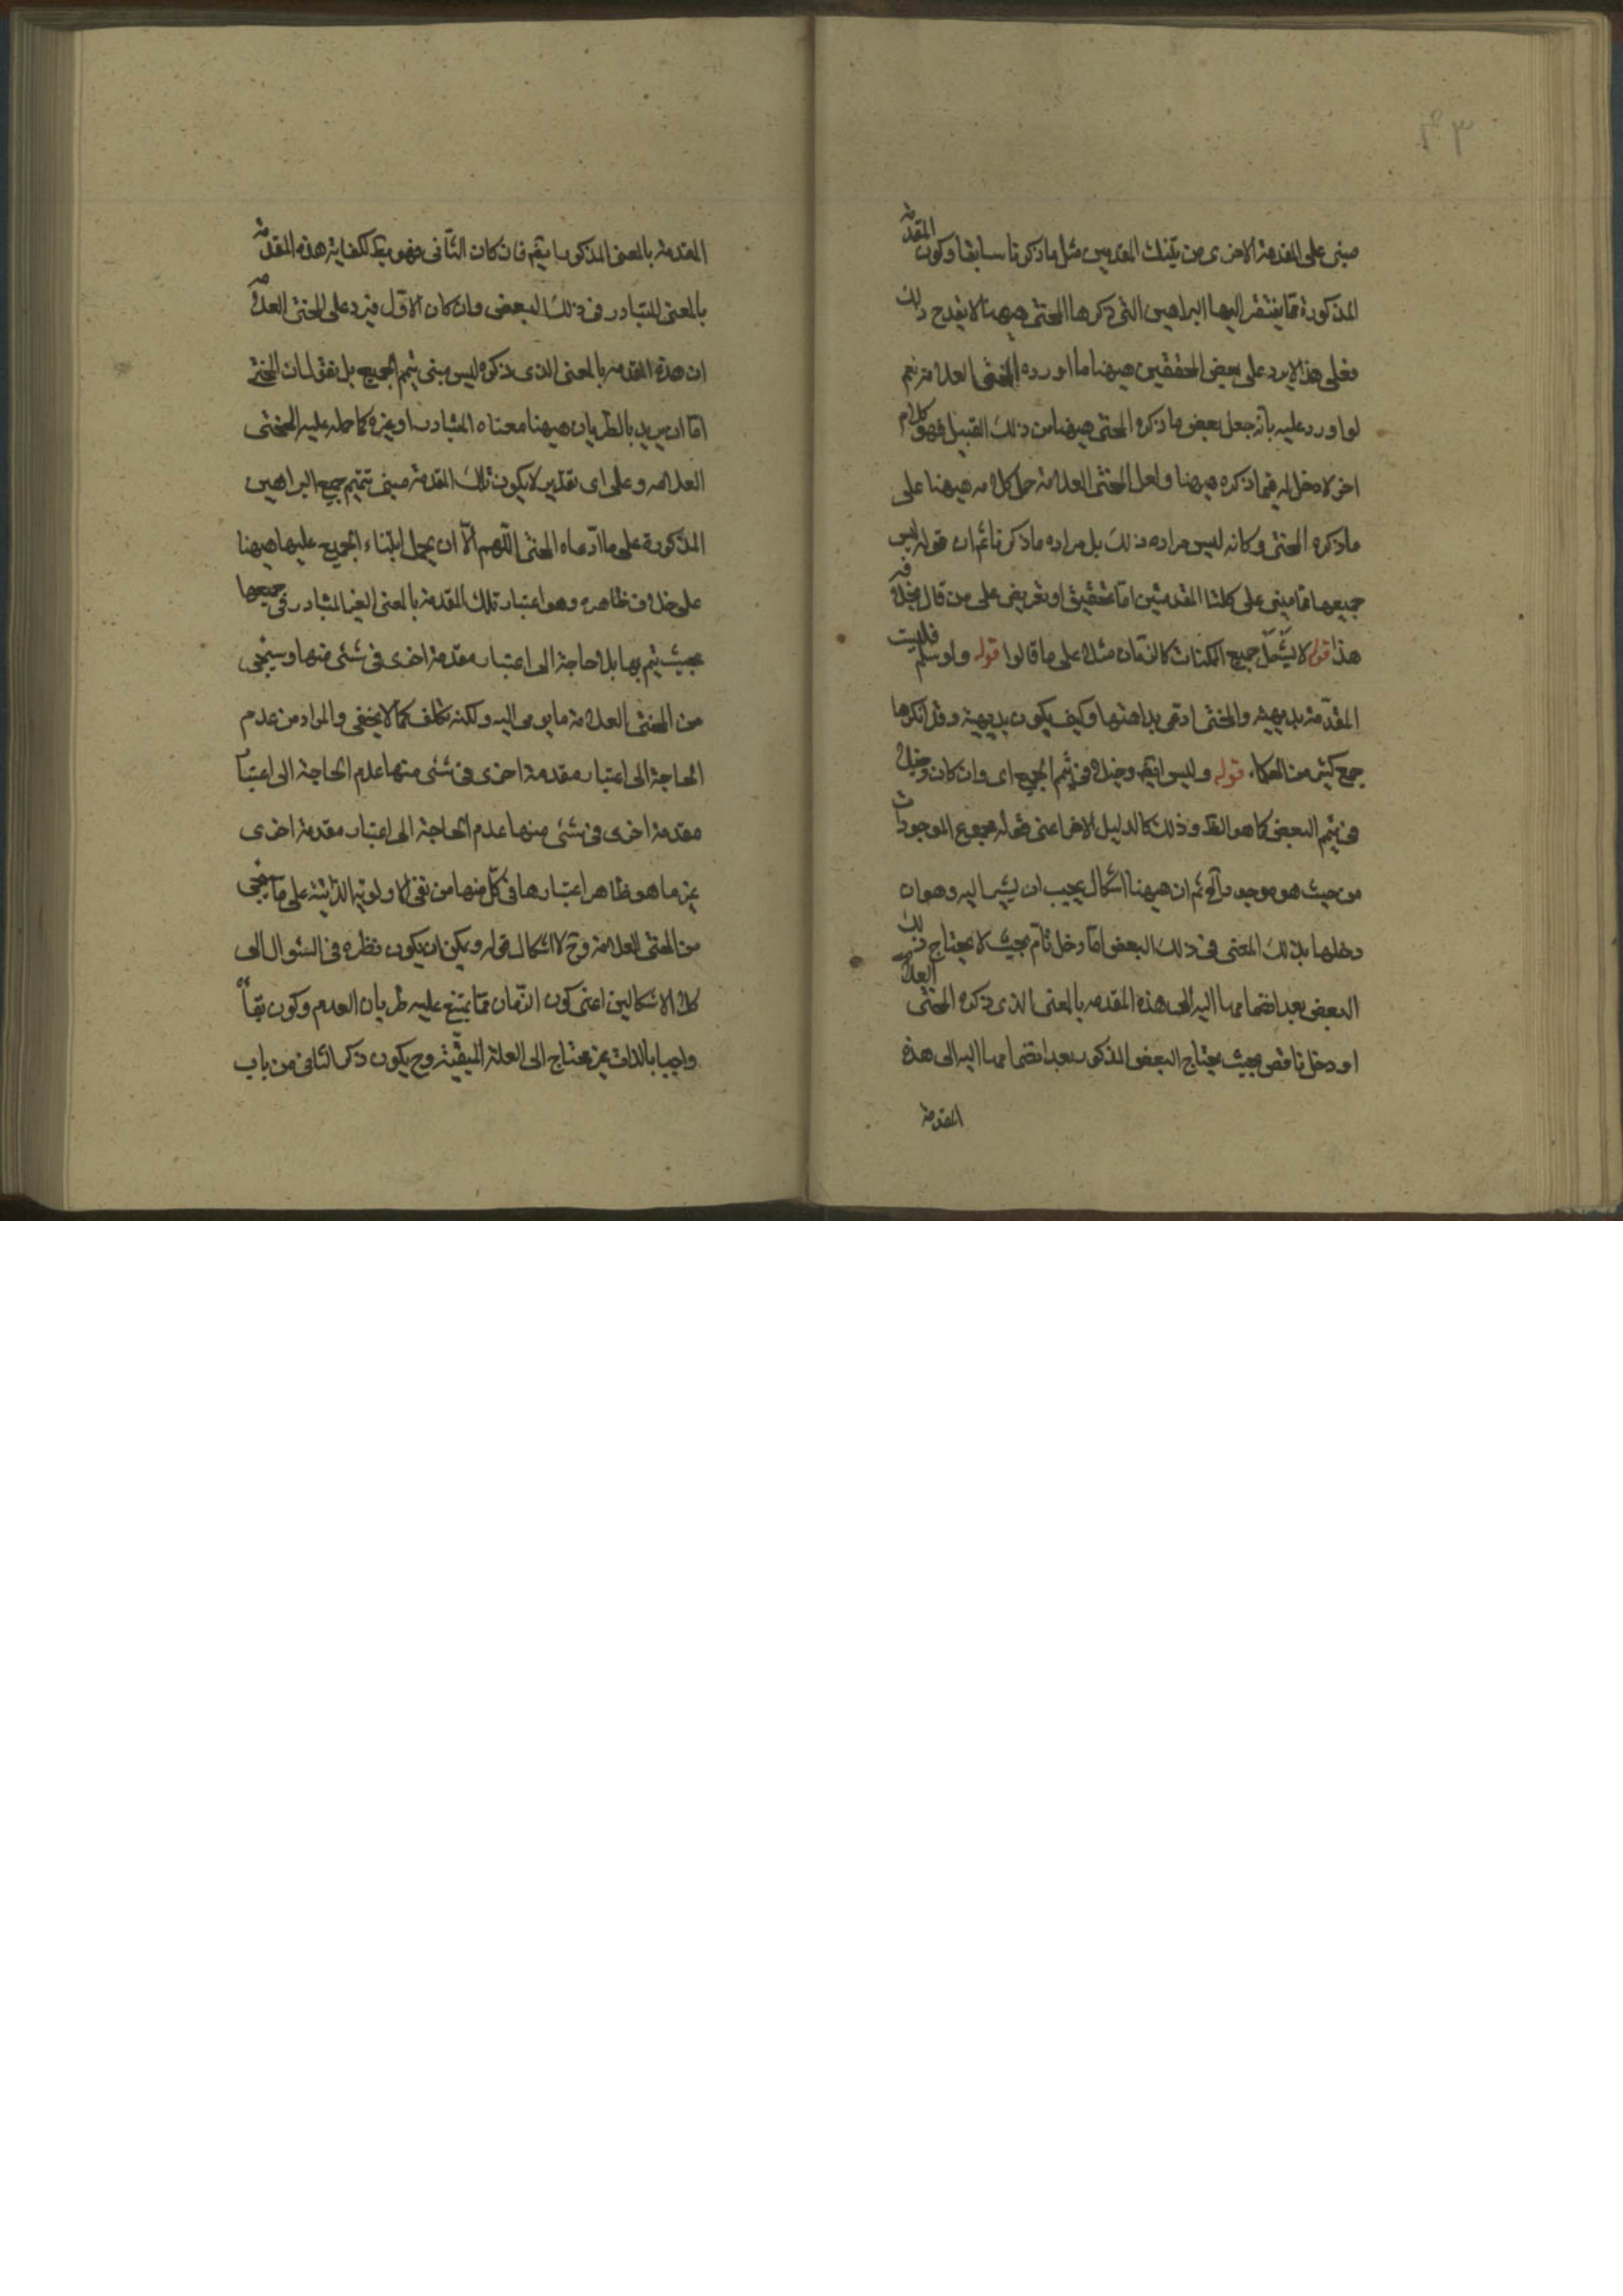 مبنى على المقدمة الاخرى من تينك المقدمتين مثل ما ذكرنا سابقا وكون المقدمة
المذكورة مما يفتقر اليها البراهين التى ذكرها المحشى هيهنا لا يقدح ذلك
فعلى هذا لا يرد على بعض المحققين هيهنا ما اورده المحشى العلامة نعم
لو اورد عليه بانه جعل بعض ما ذكره المحشى هيهنا من ذلك القبيل فهو كلام
اخر لا دخل له فيما ذكره هيهنا ولعل المحشى العلامة حمل كلامه هيهنا على
ما ذكره المحشى وكانه ليس مراده ذلك بل مراده ما ذكرنا ثم ان قوله ليس
جميعها مما يبنى على كلتا المقدمتين اما تحقيق او تعريض على من قال بخلافه
هذا قوله لا يشمل جميع الممكنات كالزمان مثلا على ما قالوا قوله ولو سلم فليست
المقدمة بديهية والمحشى ادعى بداهتها وكيف يكون بديهية وقد انكرها
جمع كثير من الحكماء قوله وليس ايضا دخيلا فى تيم الجميع اى وان كان دخيلا
فى تيم البعض كما هو الظ وذلك كالدليل الاخر اعنى قوله مجموع الموجودات
من حيث هو موجود الخ ثم ان هيهنا اشكال يجب ان يشير اليه وهو ان
دخلها بذلك المعنى فى ذلك البعض اما دخل تام بحيث لا يحتاج ذلك
البعض بعد انضمامها اليه الى هذه المقدمه بالمعنى الذى ذكره المحشى العلامة
او دخل ناقص بحيث يحتاج البعض المذكور بعد انضمامها اليه الى هذه
المقدمة
المقدمة بالمعنى المذكور ايضا فان كان الثانى فهو لكفاية هذه المقدمة
بالمعنى المتبادر فى ذلك البعض وان كان الاول فيرد على المحشى العلامة
ان هذه المقدمه بالمعنى الذى ذكره ليس مبنى تيم الجميع بل نقول ان المحشى
اما ان يريد بالطريان هيهنا معناه المتبادر او غيره كما حمله عليه المحشى
العلامه وعلى اى تقدير لا يكون تلك المقدمة مبنى تتميم جميع البراهين
المذكورة على ما ادعاه المحشى اللهم الا ان يحمل ابتناء الجميع عليها هيهنا
على خلاف ظاهره وهو اعتبار تلك المقدمة بالمعنى الغير المتبادر فى جميعها
بحيث تيم بها بلا حاجة الى اعتبار مقدمة اخرى فى شئى منها وسيجئ
من المحشى العلامة ما يومى اليه ولكنه تكلف كما لا يخفى والمراد من عدم
الحاجة الى اعتبار مقدمة اخرى فى شئى منها عدم الحاجة الى اعتبار
مقدمة اخرى فى شئى منها عدم الحاجة الى اعتبار مقدمة اخرى
غير ما هو ظاهر اعتبارها فى كل منها من نفى الاولوية الذاتية على ما سيجئ
من المحشى العلامة وح لا اشكال قوله ويمكن ان يكون نظره فى السئوال الى
كلا الاشكالين اعنى كون الزمان مما يمتنع عليه طريان العدم وكون بقائه
واجبا بالذات غير محتاج الى العلة المبقية وح يكون ذكر الثانى من باب